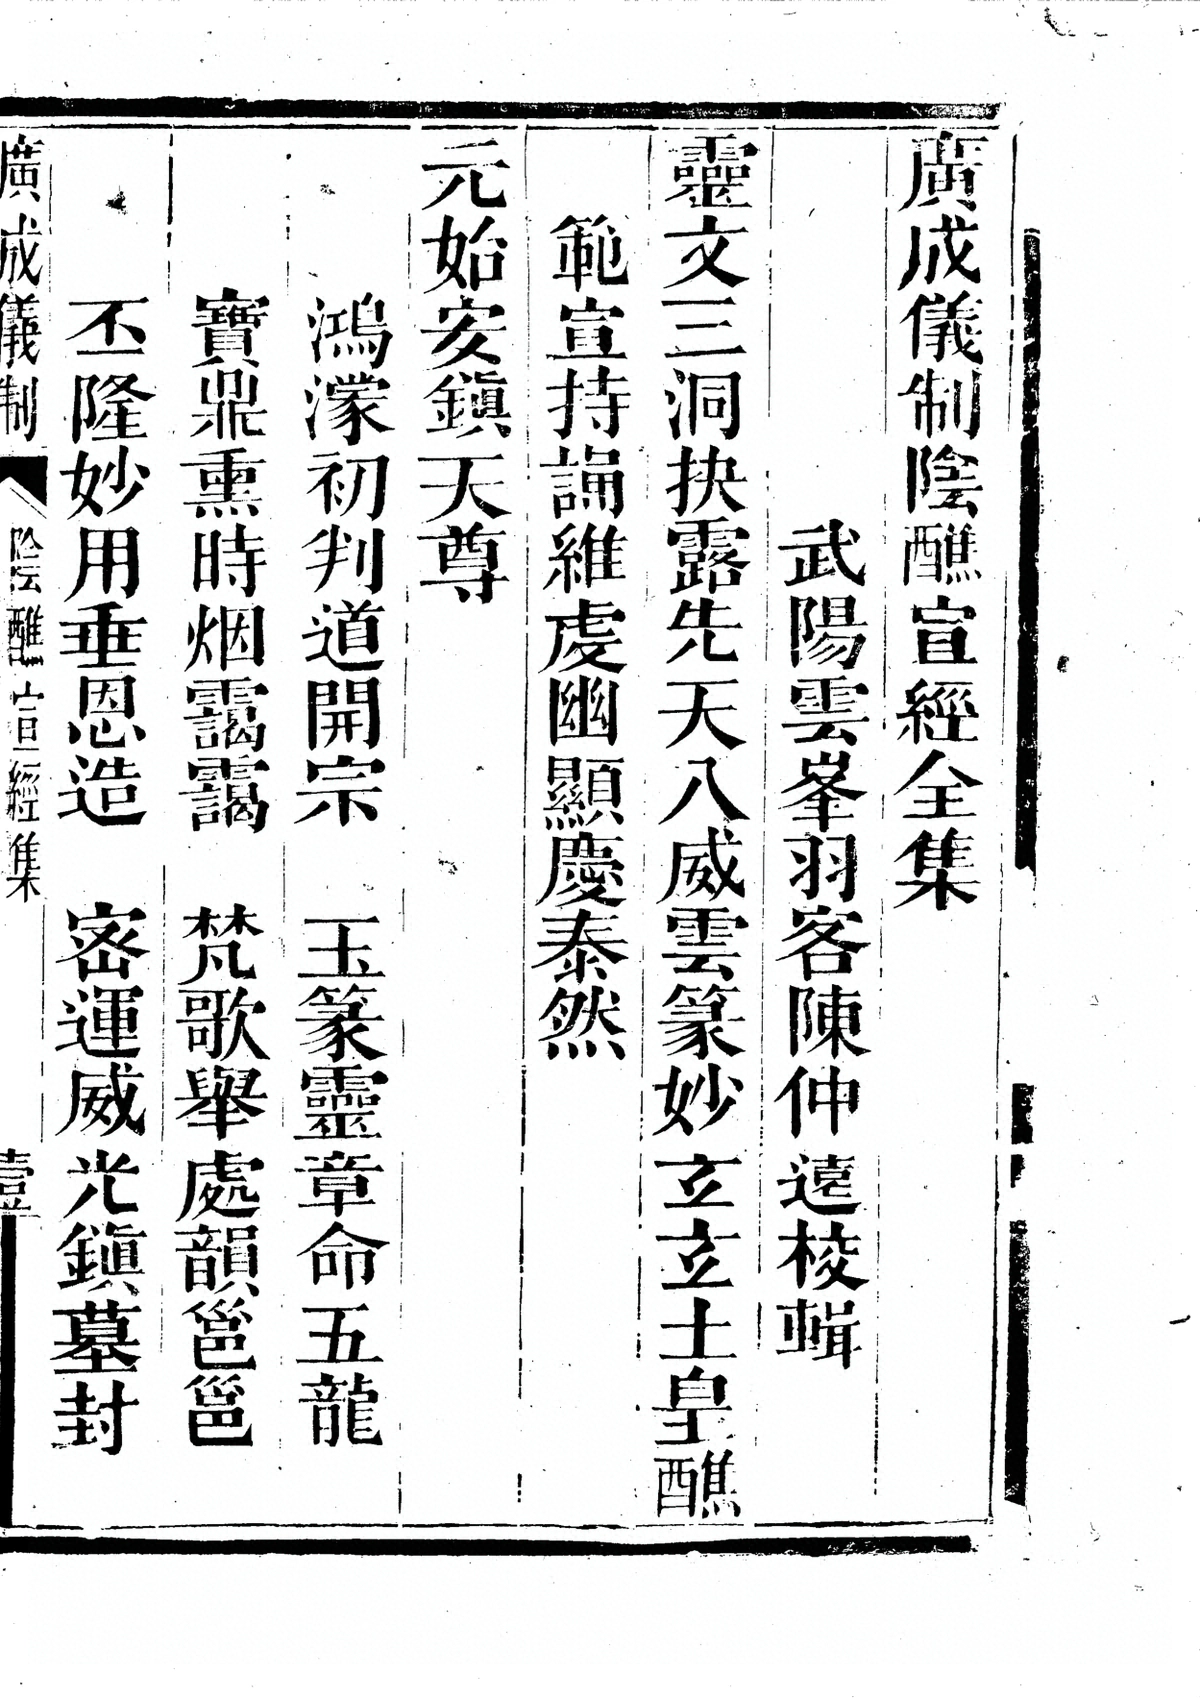 廣成儀制陰醮宣經全集
武陽雲峯羽客陳仲遠校輯
靈文三洞抉露先天八威雲篆妙立立土皇醮
範宣持誦維虔幽顯慶泰然
元始安鎮天尊
鴻濛初判道開宗　玉篆靈章命五龍
寶鼎熏時烟靄靄　梵歌舉處韻邕邕
丕隆妙用垂恩造　密運威光鎮墓封
廣成儀制　陰醮宣經集　壹